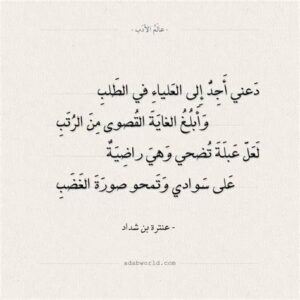 - عَالَمُ الأدَب -
دَعني أَجِدُّ إِلى العَلياءِ في الطَلبِ
وَأَبلُغُ الغايَةَ القُصوى مِنَ الرُتَبِ
لَعَلَّ عَبلَةَ تُضحي وَهيَ راضِيَةٌ
عَلى سَوادي وَتَمحو صورَةَ الغَضَبِ
- عنترة بن شداد
adabworld.com